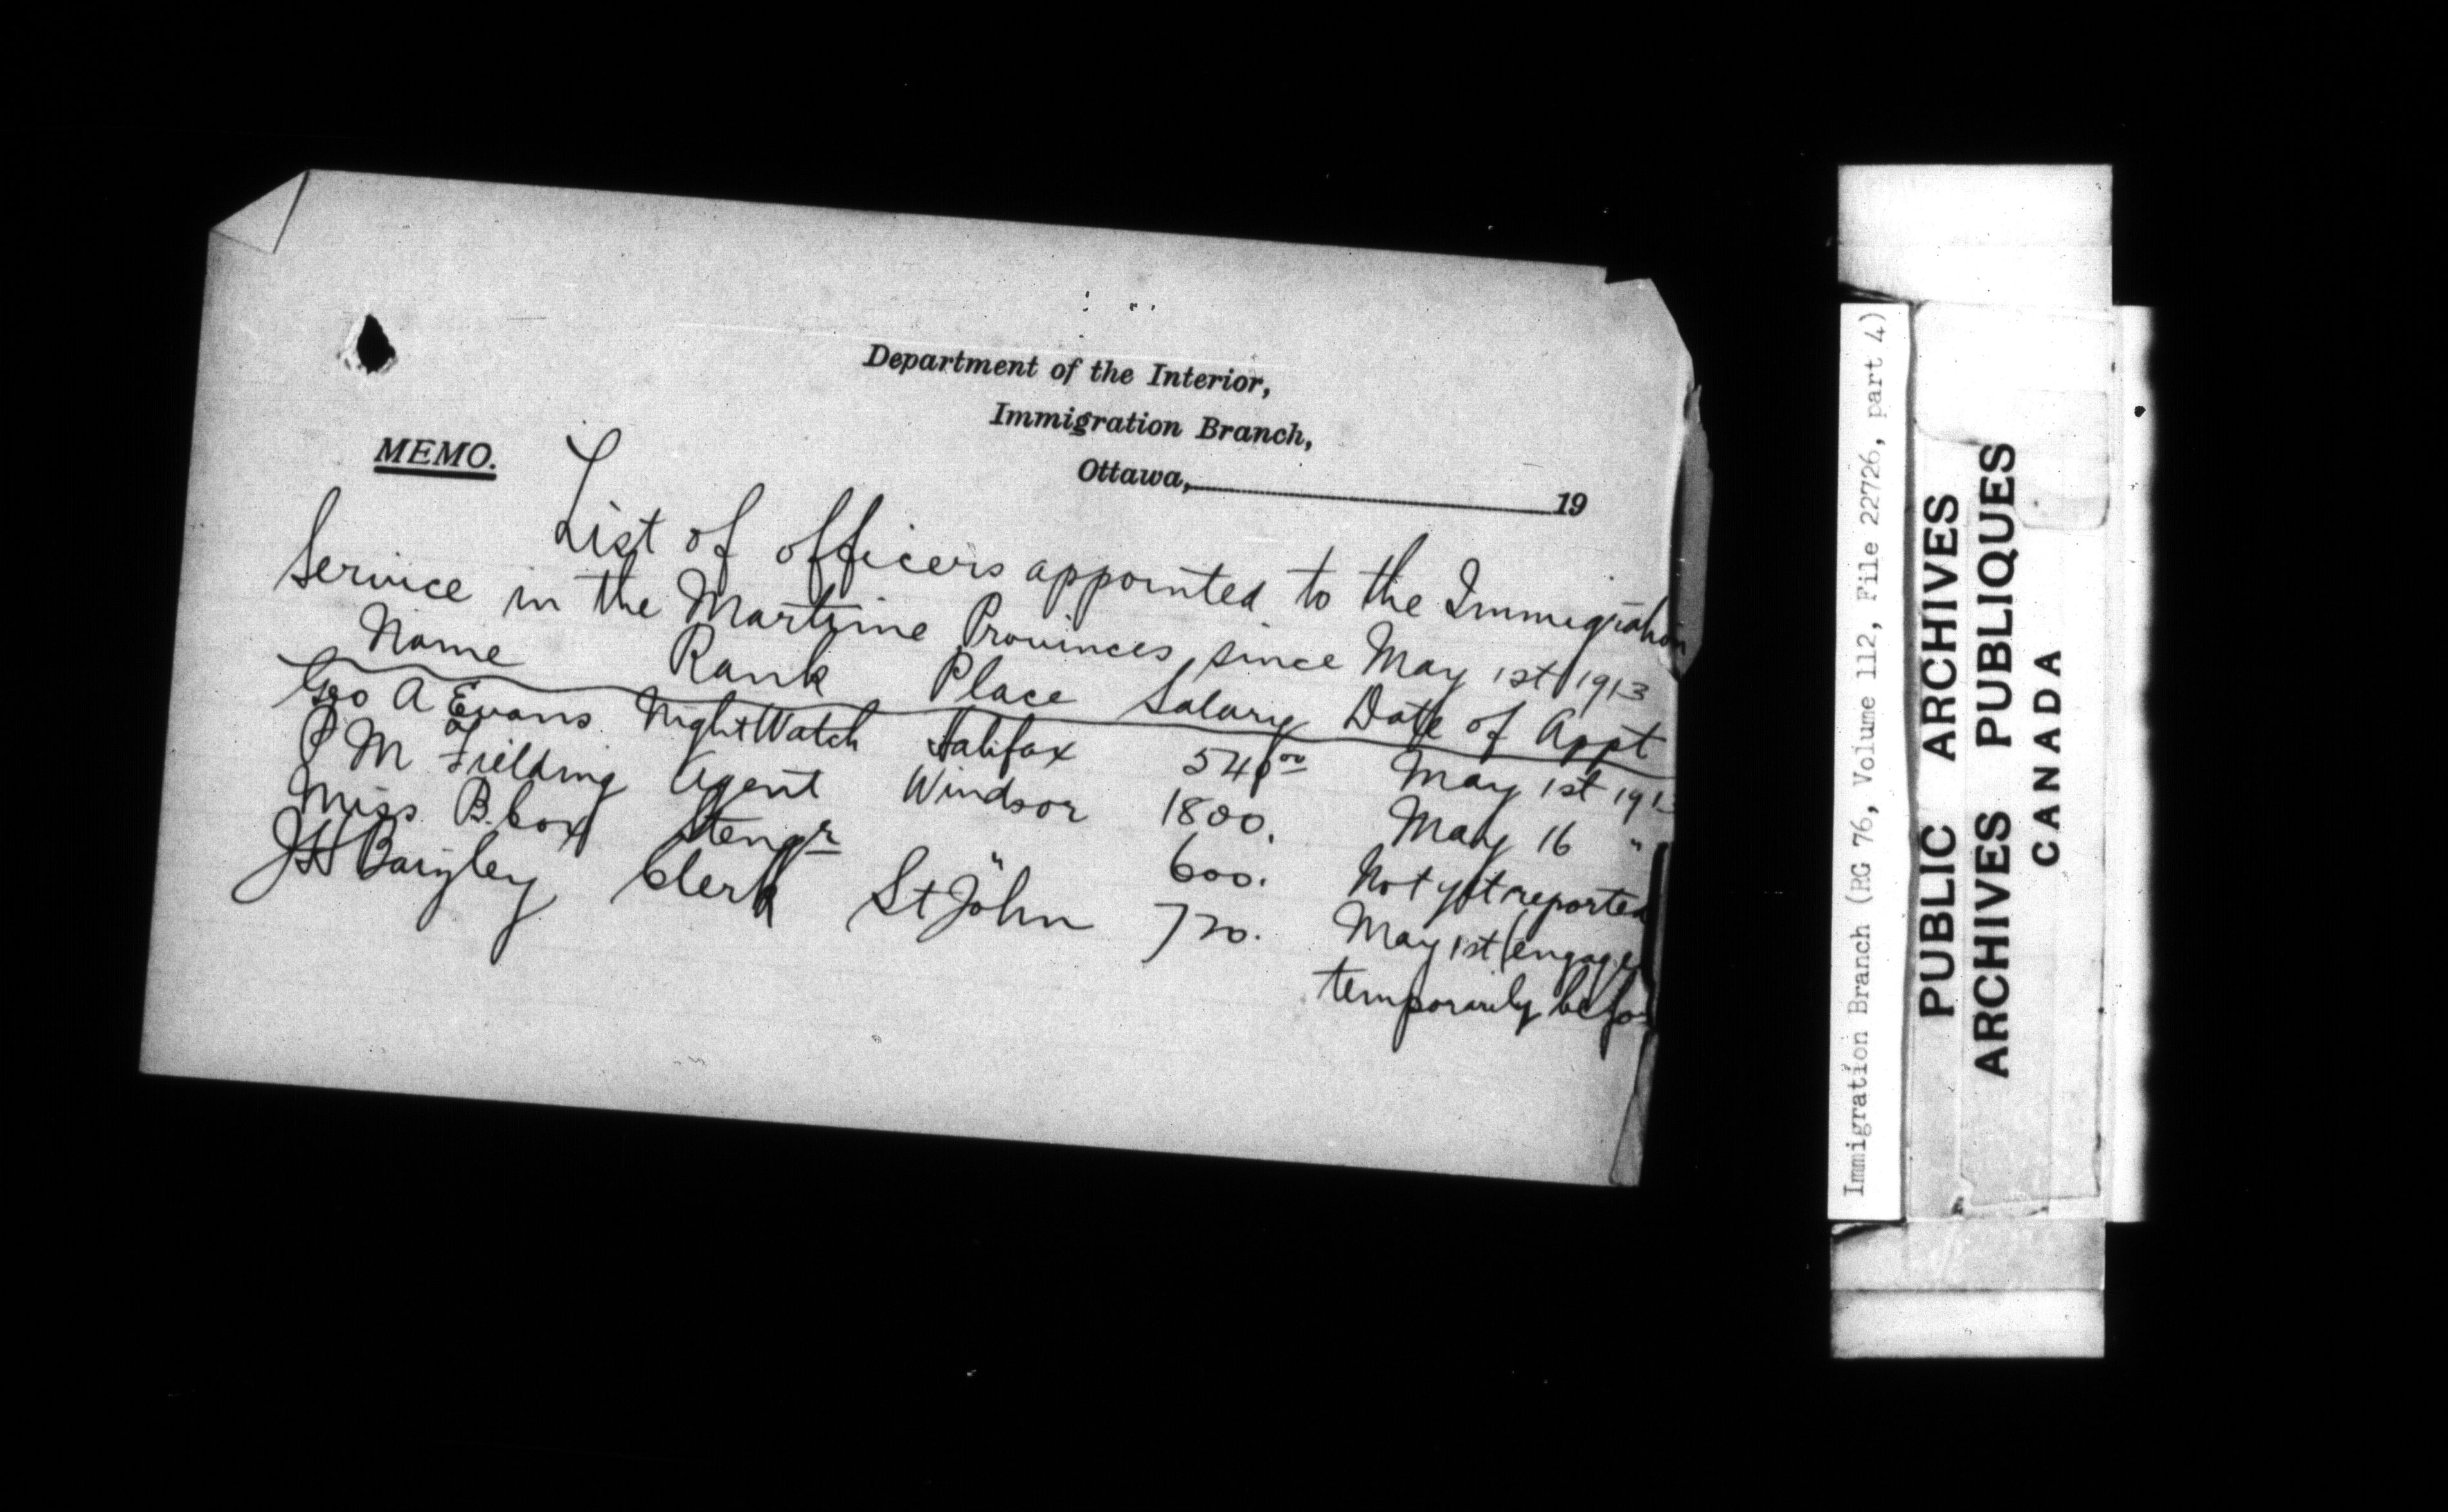 Department of the Interior,
Immigration Branch,
MEMO.
Ottawa, 19
List of officers appointed to the Immigration
Service in the Martime Provinces, since May 1st 1913
Name Rank Place Salary Date of Appt
Geo A Evans Night Watch Halifax 540.00 May 1st 191
P M Fielding Agent Windsor 1800. May 16 "
Miss B. Cox Stengr " 600. Not yet reported
J H Clerk St John 720. May 1st (engaged
temporarily before
Immigration Branch (RG 76, Volume 112, File 22726, part 4)
PUBLIC ARCHIVES
ARCHIVES PUBLIQUES
CANADA